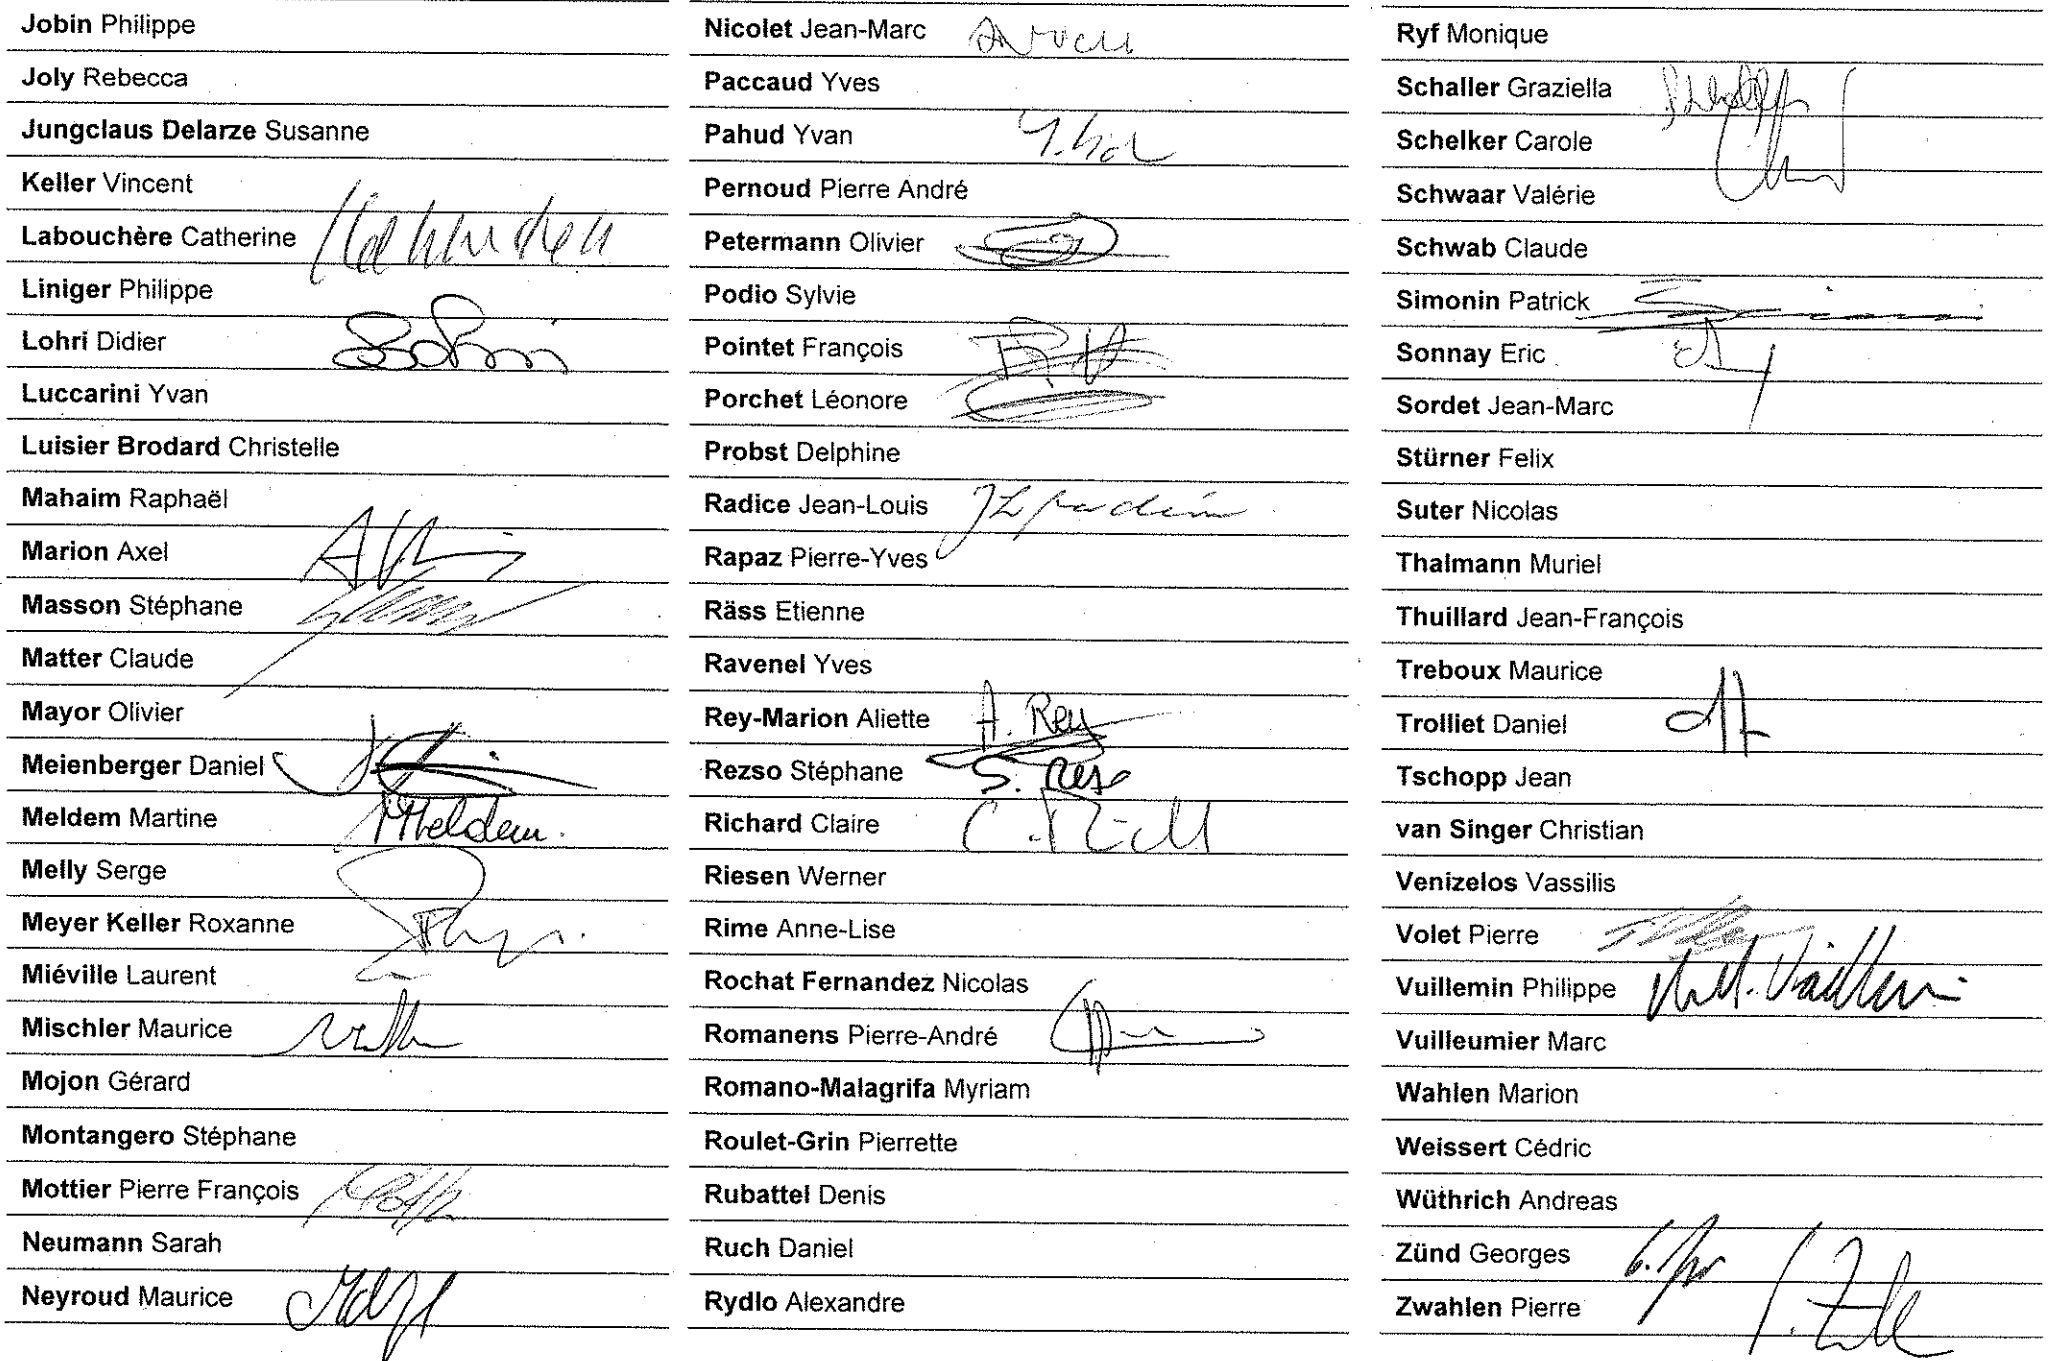 Jobin Philippe
Joly Rebecca
Jungclaus Delarze Susanne
Keller Vincent
Labouchère Catherine
Liniger Philippe
Lohri Didier
Luccarini Yvan
Luisier Brodard Christelle
Mahaim Raphaël
Marion Axel
Masson Stéphane
Matter Claude
Mayor Olivier
Meienberger Daniel
Meldem Martine Meldem.
Melly Serge
Meyer Keller Roxanne
Miéville Laurent
Mischler Maurice
Mojon Gérard
Montangero Stéphane
Mottier Pierre François
Neumann Sarah
Neyroud Maurice
Nicolet Jean-Marc
Paccaud Yves
Pahud Yvan
Pernoud Pierre André
Petermann Olivier
Podio Sylvie
Pointet François
Porchet Léonore
Probst Delphine
Radice Jean-Louis
Rapaz Pierre-Yves
Räss Etienne
Ravenel Yves
Rey-Marion Aliette A. Rey
Rezso Stéphane
Richard Claire
Riesen Werner
Rime Anne-Lise
Rochat Fernandez Nicolas
Romanens Pierre-André
Romano-Malagrifa Myriam
Roulet-Grin Pierrette
Rubattel Denis
Ruch Daniel
Rydlo Alexandre
Ryf Monique
Schaller Graziella
Schelker Carole
Schwaar Valérie
Schwab Claude
Simonin Patrick
Sonnay Eric
Sordet Jean-Marc
Stürner Felix
Suter Nicolas
Thalmann Muriel
Thuillard Jean-François
Treboux Maurice
Trolliet Daniel
Tschopp Jean
van Singer Christian
Venizelos Vassilis
Volet Pierre
Vuillemin Philippe
Vuilleumier Marc
Wahlen Marion
Weissert Cédric
Wüthrich Andreas
Zünd Georges
Zwahlen Pierre